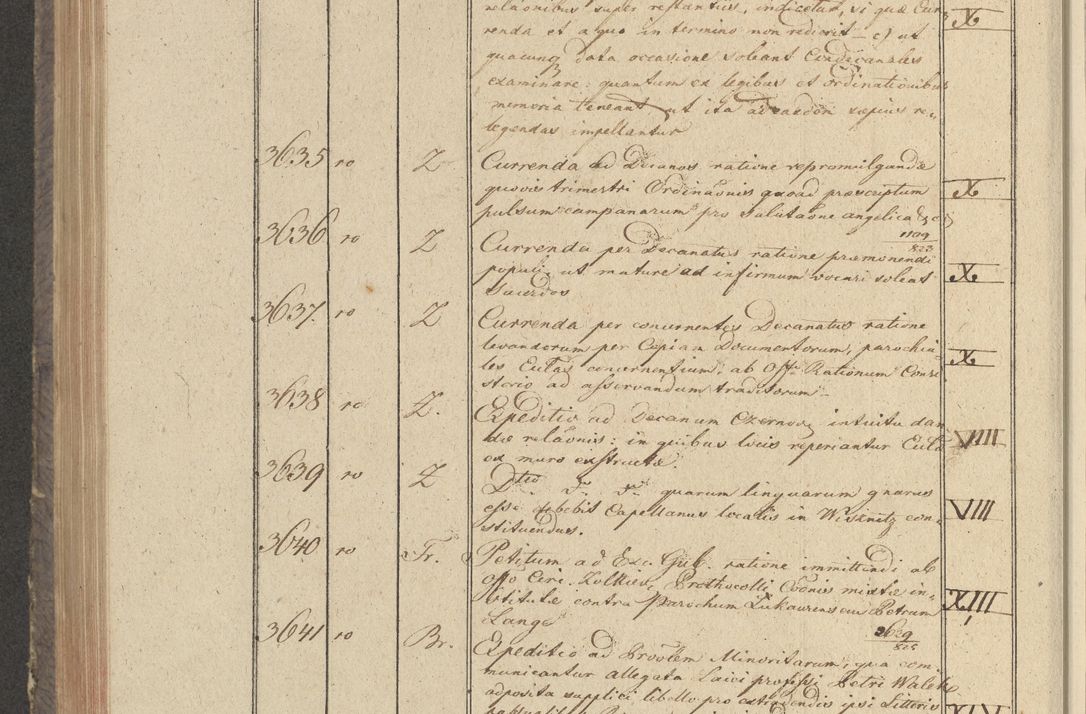 relaōnibus super restantiis, indicetur, si quæ Cur- X
renda et a quo in termino non redierit_ c) ut
quacunq data occasione soleant Condecanales
examinare: quantum ex legibus et ordinationibus
memoria teneant, ut ita ad eædem sæpius re„
legendas impellantur
3635 ro Z Currenda ad Decanos ratione repromulgandæ
quovis trimestri Ordinaōnis quoad præscriptum X
pulsum campanarum pro salutaōne angelica
3636 ro Z Currenda per Decanatus ratione præmonendi 1109/823
populi, ut mature ad infirmum vocari soleat X
Sacerdos
3637. ro Z Currenda per concernentes Decanatus ratione
levandorum per Copiam Documentorum, parochia„ X
les Ecclās concernentium, ab Offo Rationum Consi
storio ad asservandum traditorum_
3638 ro Z. Expeditio ad Decanum Czernov intuitu dan
dæ relaōnis: in quibus locis reperiantur Ecclæ VIIII
ex muro exstructæ.
3639 ro Z Dtto quarum linguarum gnarus
esse debebit Capellanus localis in Wisknitz con„ VIII
stituendus.
3640 ro Fr. Petitum ad Exc. Gub. ratione immittendi ab
Offo Circ. Zolkiev. Prothocolli Cōonis mixtæ in„ XIII
stitutæ contra Parochum Lukaviensem Petrum
Lange 2629/825
3641 ro Br. Expeditio ad Provlem Minoritarum, qua com„
municantur allegata Laici professi Petri Walek
adposita supplici libello pro extradendis ipsi Litteris XIV